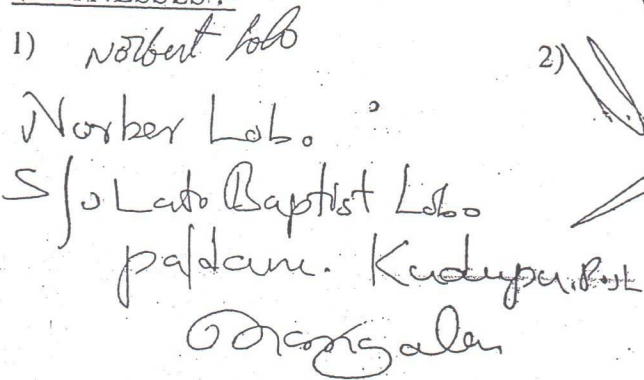 WITNESSES:
1) Norbert Lobo
2)
Norber Lobo
S/o Late Baptist Lobo
paldane. Kudupu, Post
Mangalore